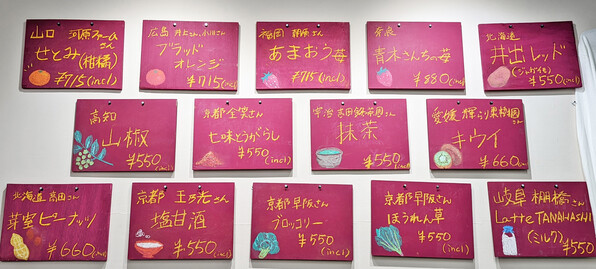 山口 河原ファームさん
せとみ(柑橘)
¥715(incl)
広島 井上さん、小川さん
ブラッド
オレンジ
¥715(incl)
福岡 さん
あまおう苺
¥715(incl)
奈良
青木さんちの苺
¥880(incl)
北海道
井出レッド
(じゃがイモ)
¥550(incl)
高知
山椒
¥550(incl)
京都 全笑さん
七味とうがらし
¥550
(incl)
宇治 吉田銘茶園さん
抹茶
¥550(incl)
愛媛 輝らり果樹園さん
キウイ
¥660(incl)
北海道 高田さん
芽蜜ピーナッツ
¥660(incl)
京都 さん
塩甘酒
¥550(incl)
京都 早阪さん
ブロッコリー
¥550
(incl)
京都 早阪さん
ほうれん草
¥550
(incl)
岐阜 棚橋さん
Latte TANAHASHI
(ミルク) ¥550
(incl)